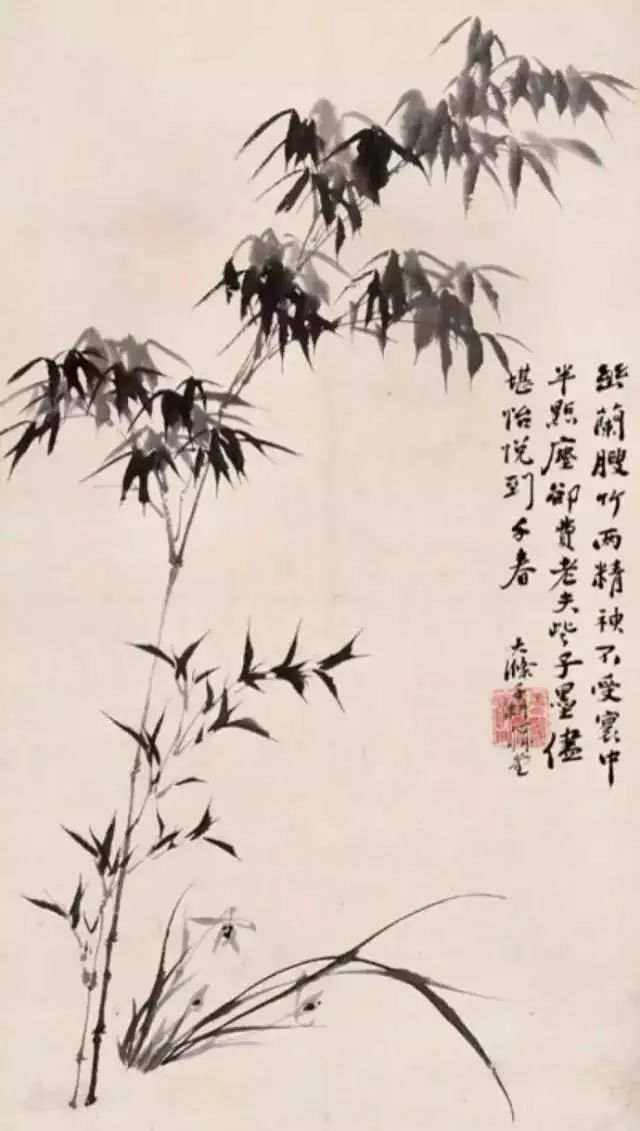 幽蘭膄竹兩精神不受寰中
半點塵卻費老夫些子墨儘
堪怡悅到千春
大滌子